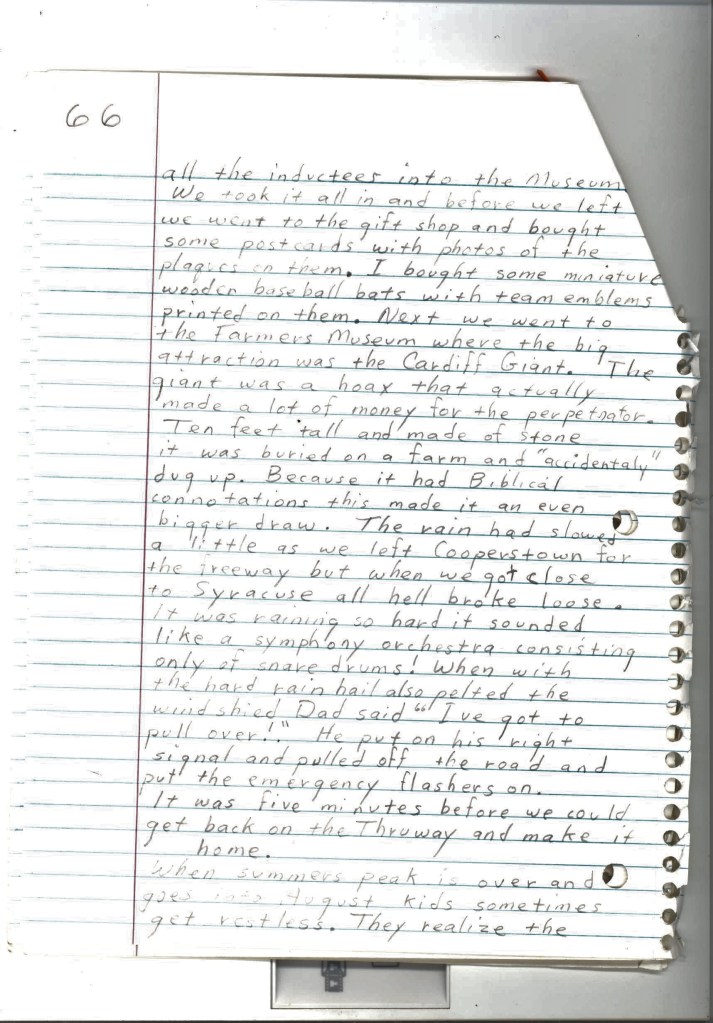 66
all the inductees into the Museum
We took it all in and before we left
we went to the gift shop and bought
some postcards with photos of the
plaques on them. I bought some miniature
wooden baseball bats with team emblems
printed on them. Next we went to
the Farmers Museum where the big
attraction was the Cardiff Giant. The
giant was a hoax that actually
made a lot of money for the perpetrator.
Ten feet tall and made of stone
it was buried on a farm and "accidentaly"
dug up. Because it had Biblical
connotations this made it an even
bigger draw. The rain had slowed
a little as we left Cooperstown for
the freeway but when we got close
to Syracuse all hell broke loose.
it was raining so hard it sounded
like a symphony orchestra consisting
only of snare drums! When with
the hard rain hail also pelted the
windshied Dad said "I've got to
pull over!" He put on his right
signal and pulled off the road and
put the emergency flashers on.
It was five minutes before we could
get back on the Thruway and make it
home.
When summers peak is over and
goes into August kids sometimes
get restless. They realize the